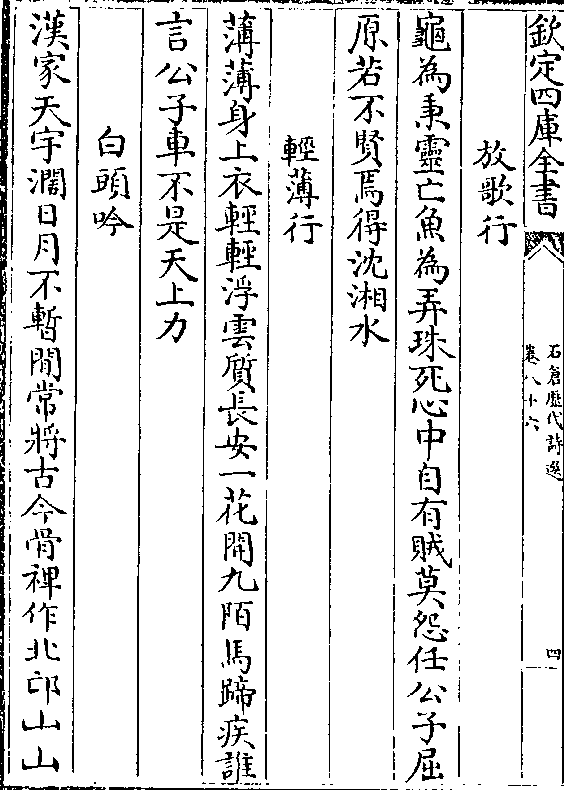 欽定四庫全書
石倉歷代詩選
卷八十六
四
放歌行
龜為秉靈亡魚為弄珠死心中自有賊莫怨任公子屈
原若不賢焉得沈湘水
輕薄行
薄薄身上衣輕輕浮雲質長安一花開九陌馬蹄疾誰
言公子車不是天上力
白頭吟
漢家天宇濶日月不暫閒常將古今骨裨作北邙山山